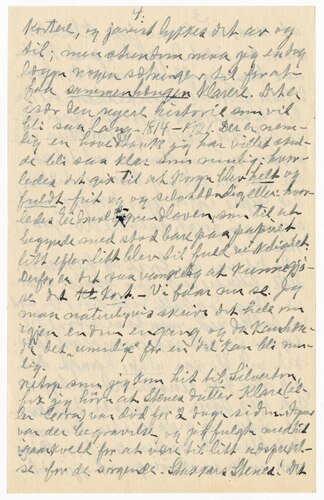 4.
kortere, og javist lykkes det av og
til; men stundom maa jeg endog
lægge nogen sætninger til for at
faa sammenhængen klarere. Det er
især den nyere historie som vil
bli saa lang - 1814 - 1721. Der er nem-
lig en hovedtanke jeg har villet skul-
de bli saa klar som mulig: hvor-
ledes det gik til at Norge blev helt og
fuldt frit og og selvstændig eller hvor-
ledes Eidsvoldsgrundloven, som til at
begynde med stod bare paa papiret
litt efter litt blev til fuld virkelighet.
Derfor er det saa vanskelig at kunne gjø-
re det kort. - Vi faar nu se. Jeg
maa naturligvis skrive det hele om
igjen endnu en gang og da kanhæn-
de det "umulige" for en del kan bli mu-
lig.
Netop som jeg kom hit til Silverton
fik jeg høre at Stenes datter Klara (el-
ler Cora) var død for 2 dage siden. Igaar
var der begravelse og jeg fulgte med til
for at være til litt adspredel-
se for de sørgende. Stenes. Det